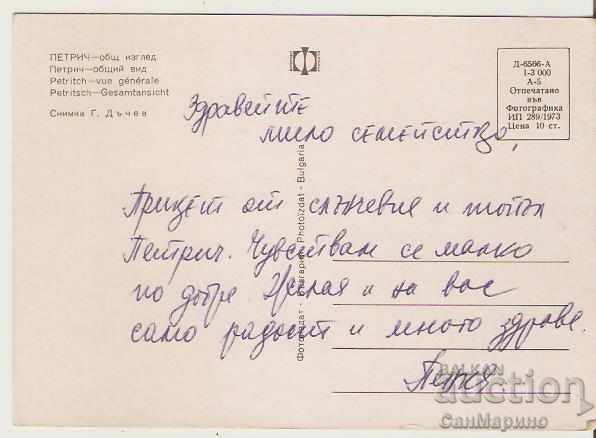 ПЕТРИЧ—общ изглед
Петрич—общий вид
Petritch—vue générale
Petritsch—Gesamtansicht
Снимка Г. Дъчев
Д-6566-А
1-3 000
А-5
Отпечатано
във
Фотографика
ИП 289/1973
Цена 10 ст.
Фотоиздат - България Photoizdat - Bulgaria
Здравейте
мило семейство,
Привет от слънчевия и топъл
Петрич. Чувствам се малко
по добре Желая и на вас
само радост и много здраве.
Петя
BALKAN
auction
СанМарино